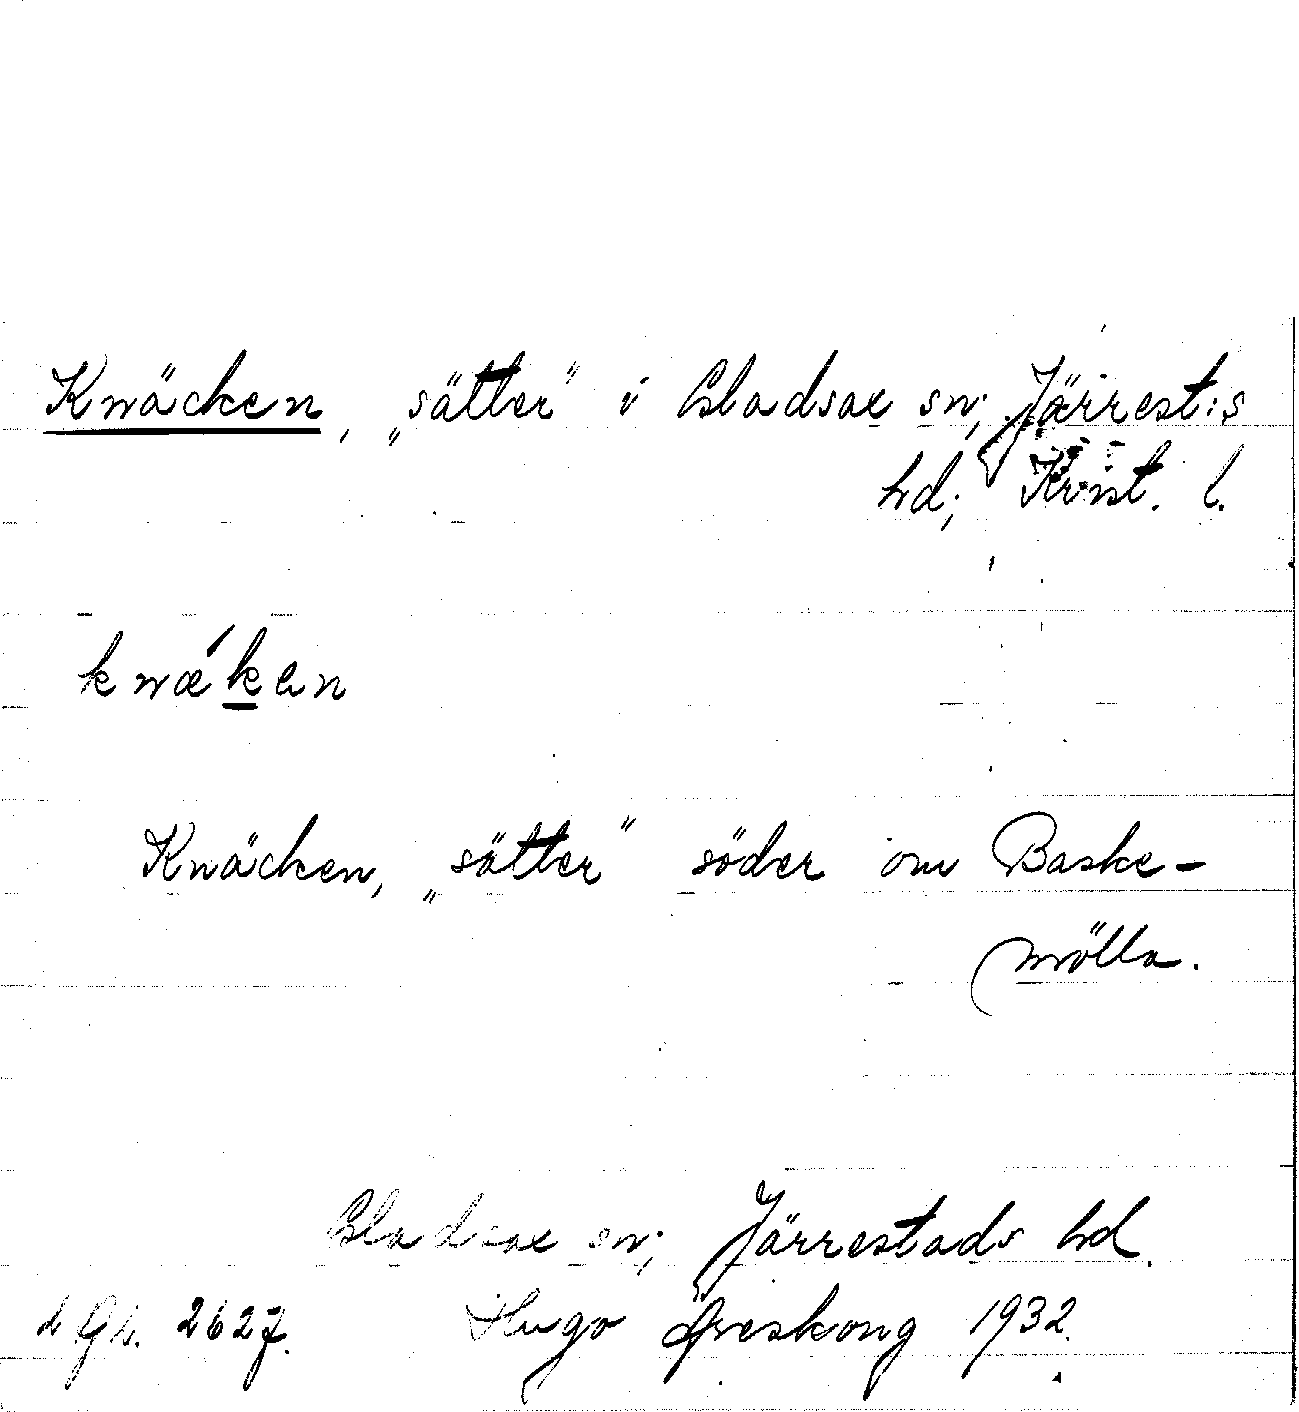 Knäcken, „sätter” i Gladsax sn; Järrest:s
hd; Krist. l.
knækən
Knäcken, „sätter” söder om Baske-
mölla.
Gladsax sn; Järrestads hd.
2627. Hugo Areskoug 1932.